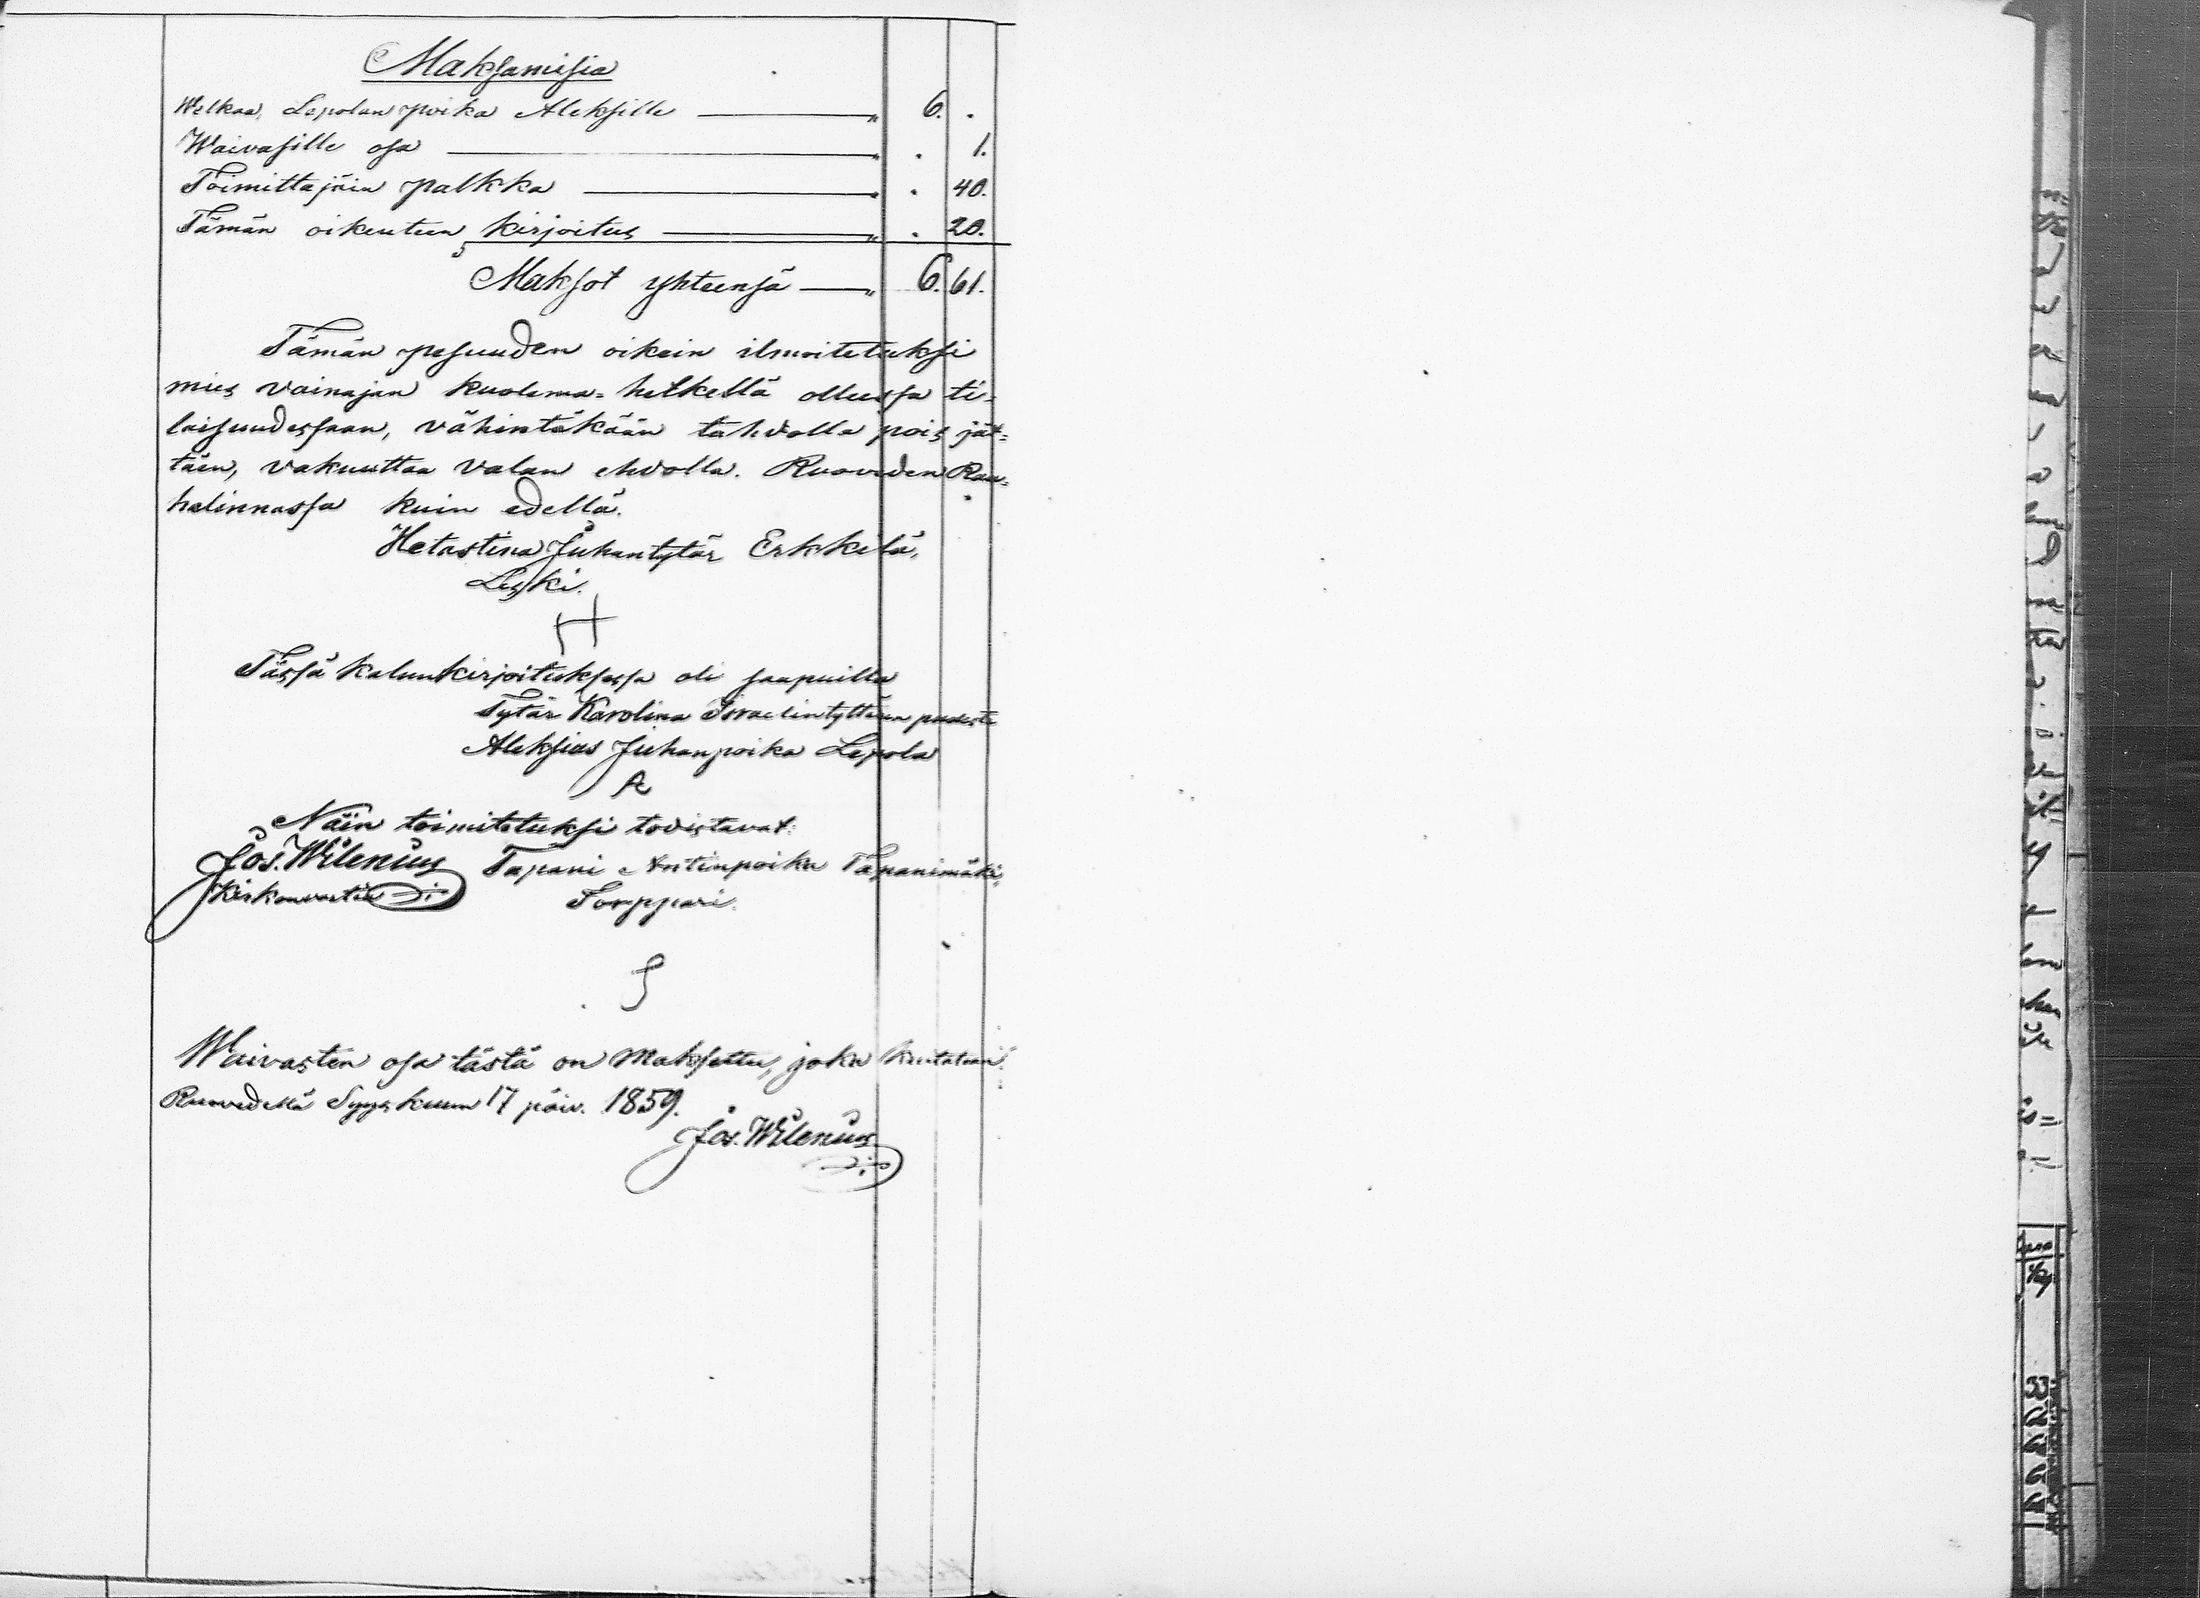 Maksamisia
Welkaa, Lepolan poika Aleksille — " 6. .
Waivasille osa — " . 1.
Toimittajain palkka — " . 40.
Tämän oikeuteen kirjoitus — " . 20.
Maksot yhteensä — " 6. 61.
Tämän pesuuden oikein ilmoitetuksi
mies vainajan kuolema-hetkellä ollessa ti-
laisuudessaan, vähintäkään tahdolla pois jät-
täen, vakuuttaa valan ehdolla. Ruoveden Rau-
halinnassa kuin edellä.
Hetastina Juhantytär Erkkilä,
Leski.
Tässä kalunkirjoituksessa oli saapuilla
Tytär Karolina Israelintyttären puolesta
Aleksius Juhanpoika Lepola
A
Näin toimitetuksi todistavat:
Jos. Wilenius Tapani Antinpoika Tapanimäki,
Kirkonvartia Torppari.
Waivasten osa tästä on maksettu, joka kuitataan.
Ruovedellä Syyskuun 17 päiv. 1859.
Jos. Wilenius